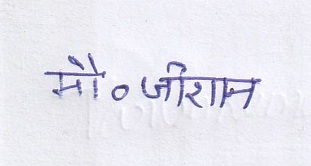 मौ० जीशान